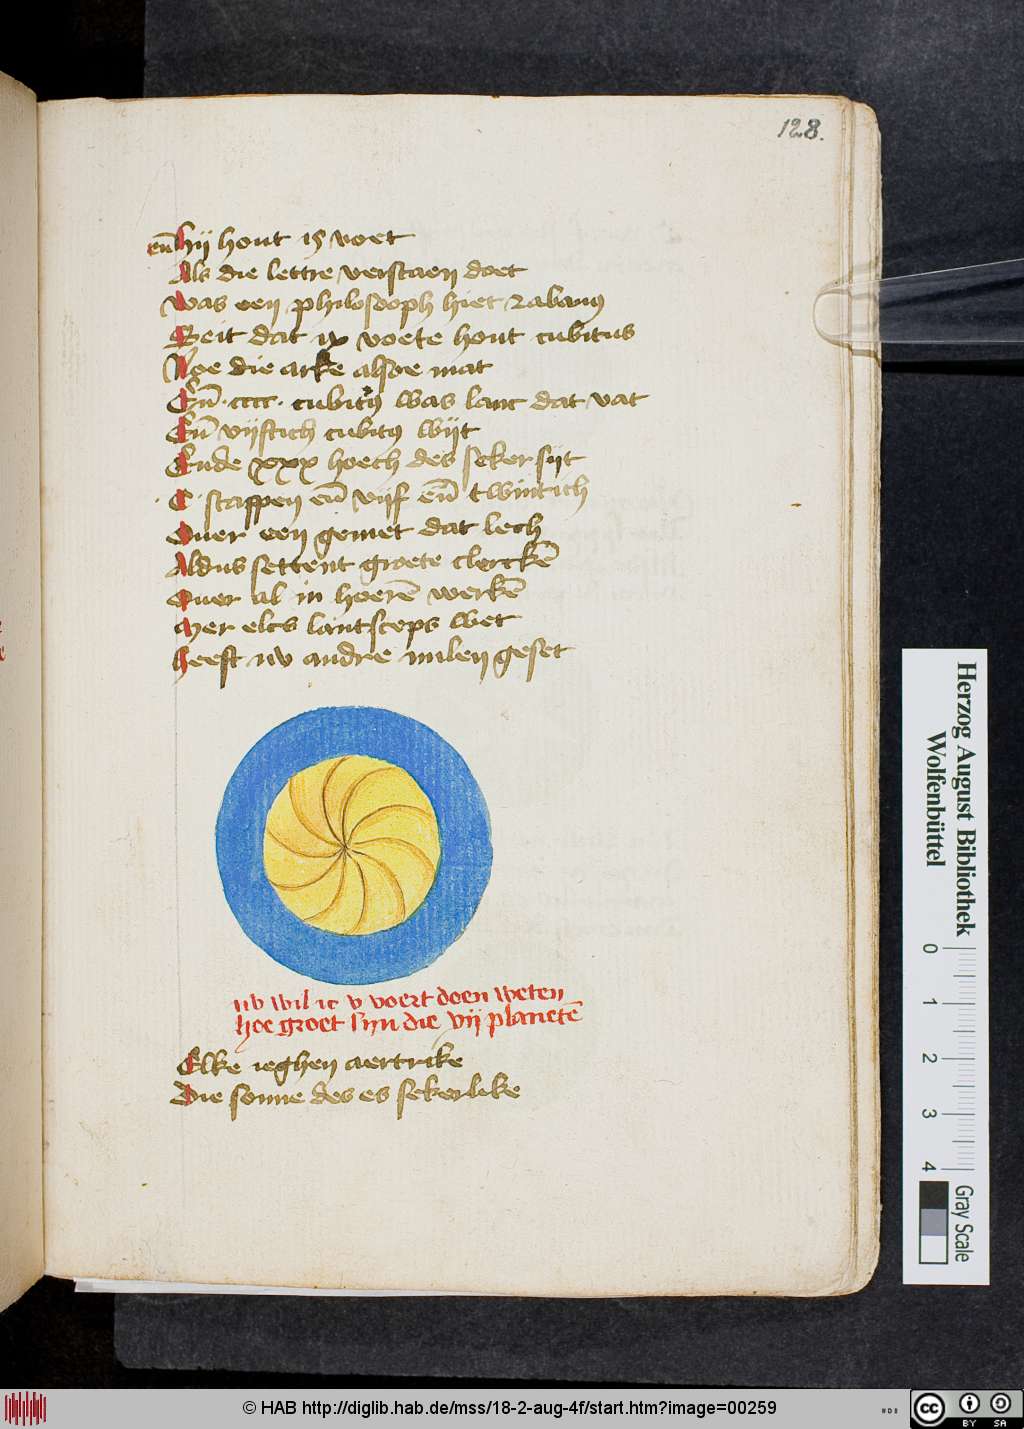 128.
eñ hij hout iꝭ voet
Als die lettre verstaen doet
Was een philosooph hiet rabanꝰ
Seit dat ix voete hout cubitus
Noe die arke alsoe mat
Eñ · cccc · cubitꝰ was lanc dat vat
Eñ vijftich cubitꝰ wijt
Ende xxx hoech des seker sijt
· C · stappen eñ vijf eñ twintich
Ouer een gemet dat lech
Aldus settent groete clerckē
Ouer al in hoerē werkē
Mer elcs lantsceps wet
heeft nv andre milen geset
nv wil ic v voert doen weten
hoe groet sijn die vij planetē
Elke ieghen aertrike
Die sonne des es sekerlike
Herzog August Bibliothek
Wolfenbüttel
0 1 2 3 4
Gray Scale
© HAB http://diglib.hab.de/mss/18-2-aug-4f/start.htm?image=00259
CC BY SA